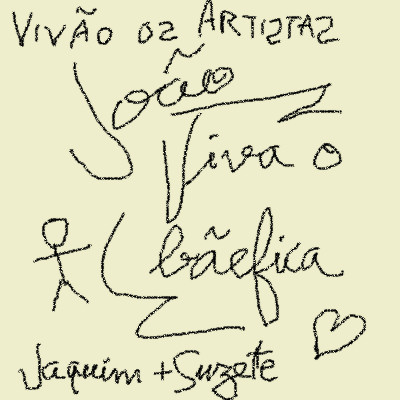 VIVÃO OS ARTISTAS
João
Viva o
Bãefica
Jaquim + Suzete